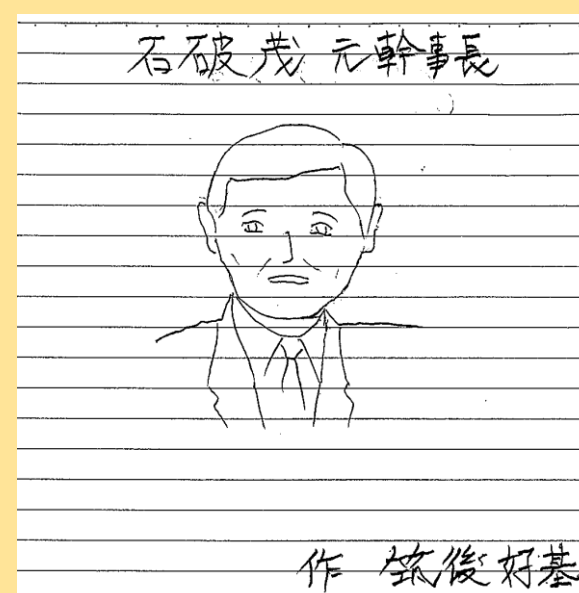 石破茂 元幹事長
作 筑後好基